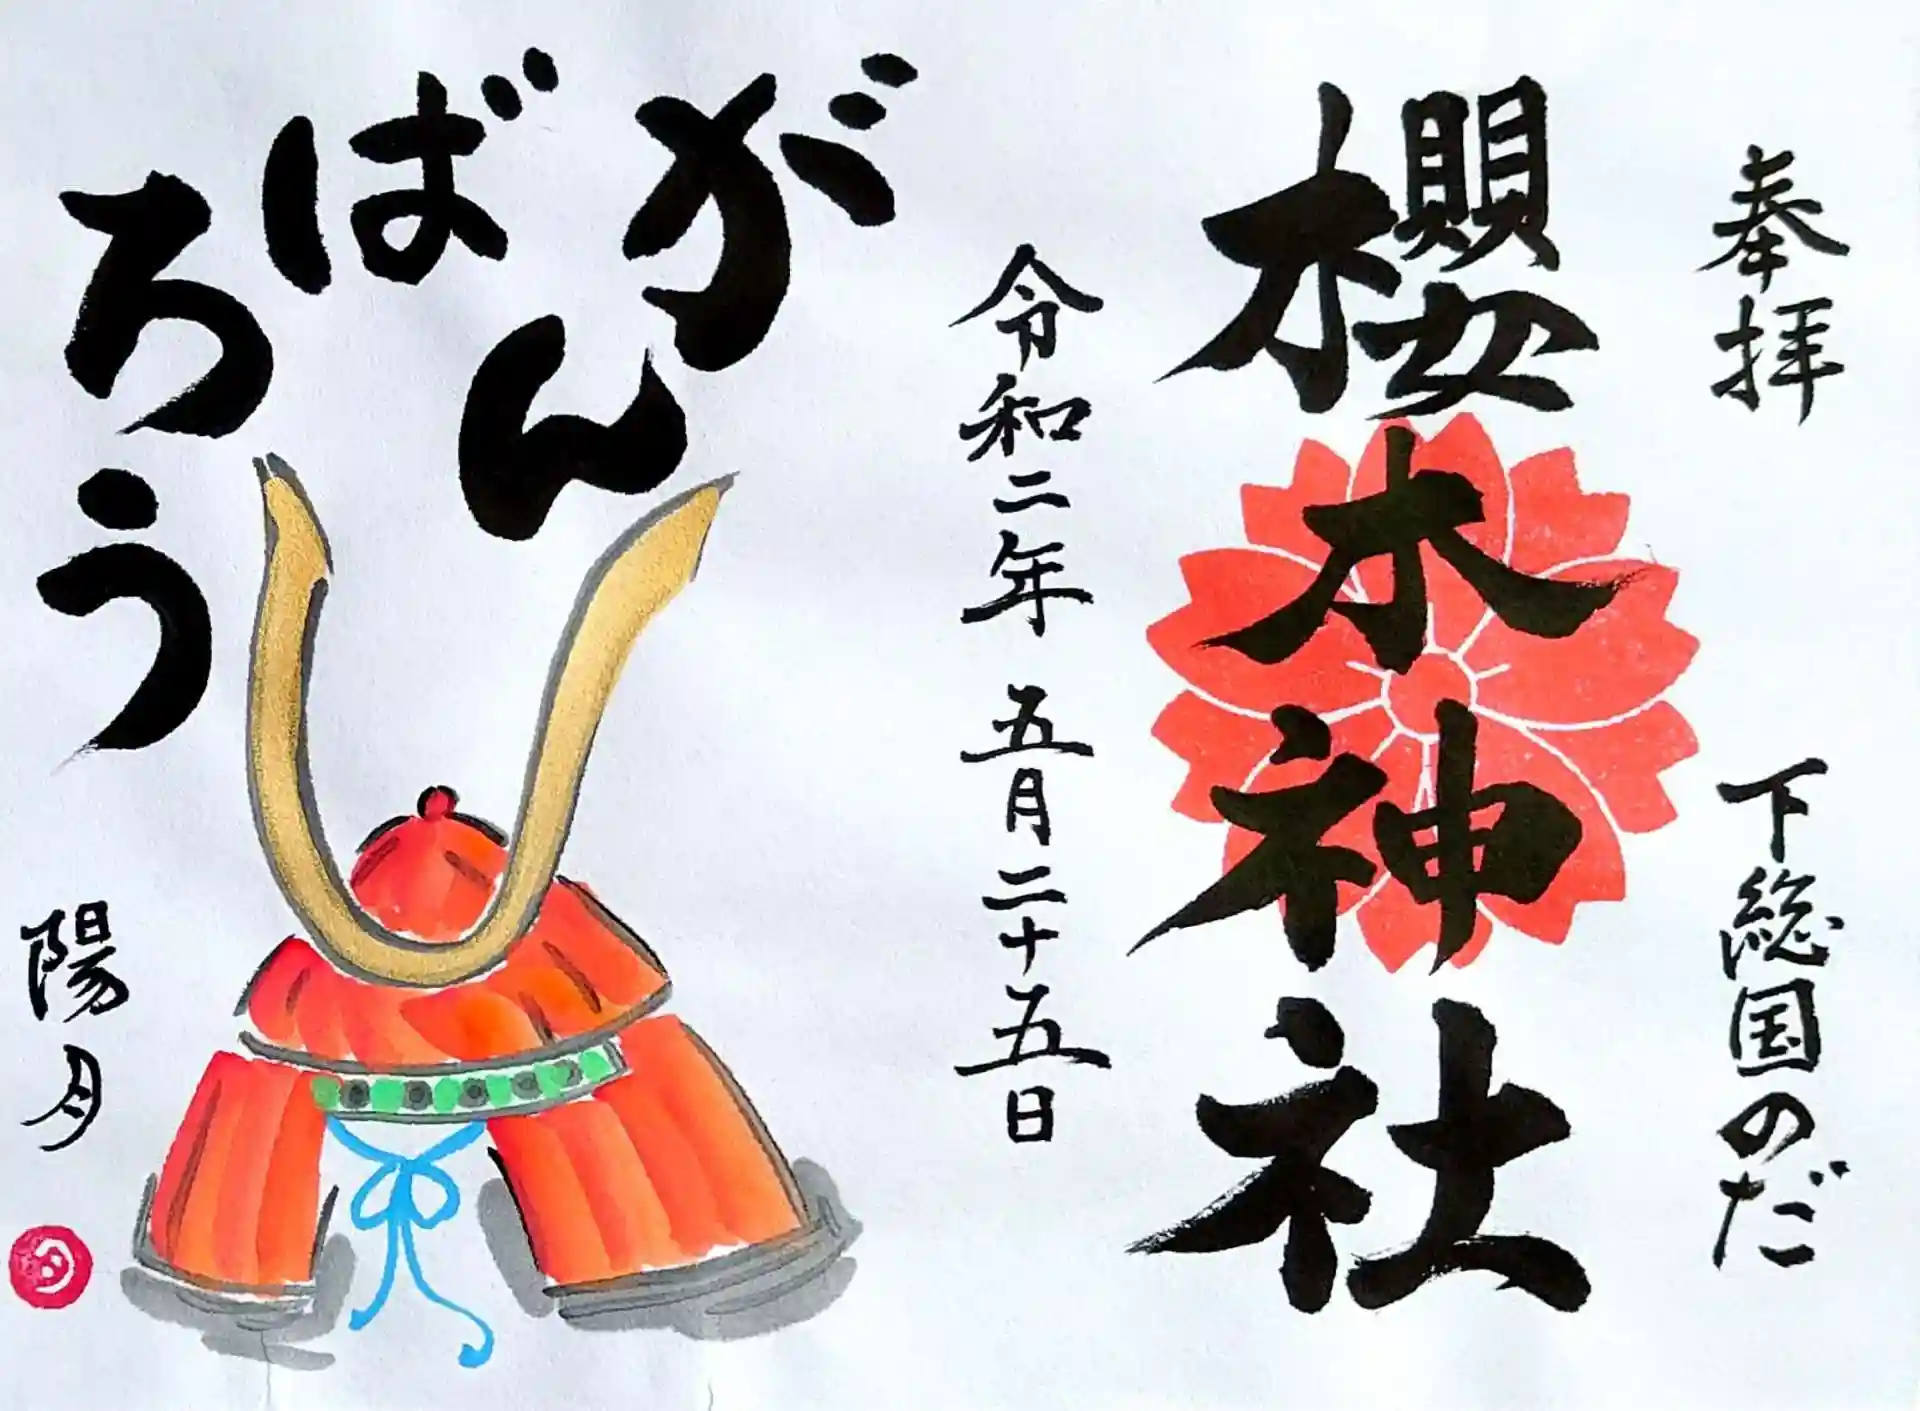 奉拝
下総国のだ
櫻木神社
令和二年 五月二十五日
がん
ば
ろう
陽月